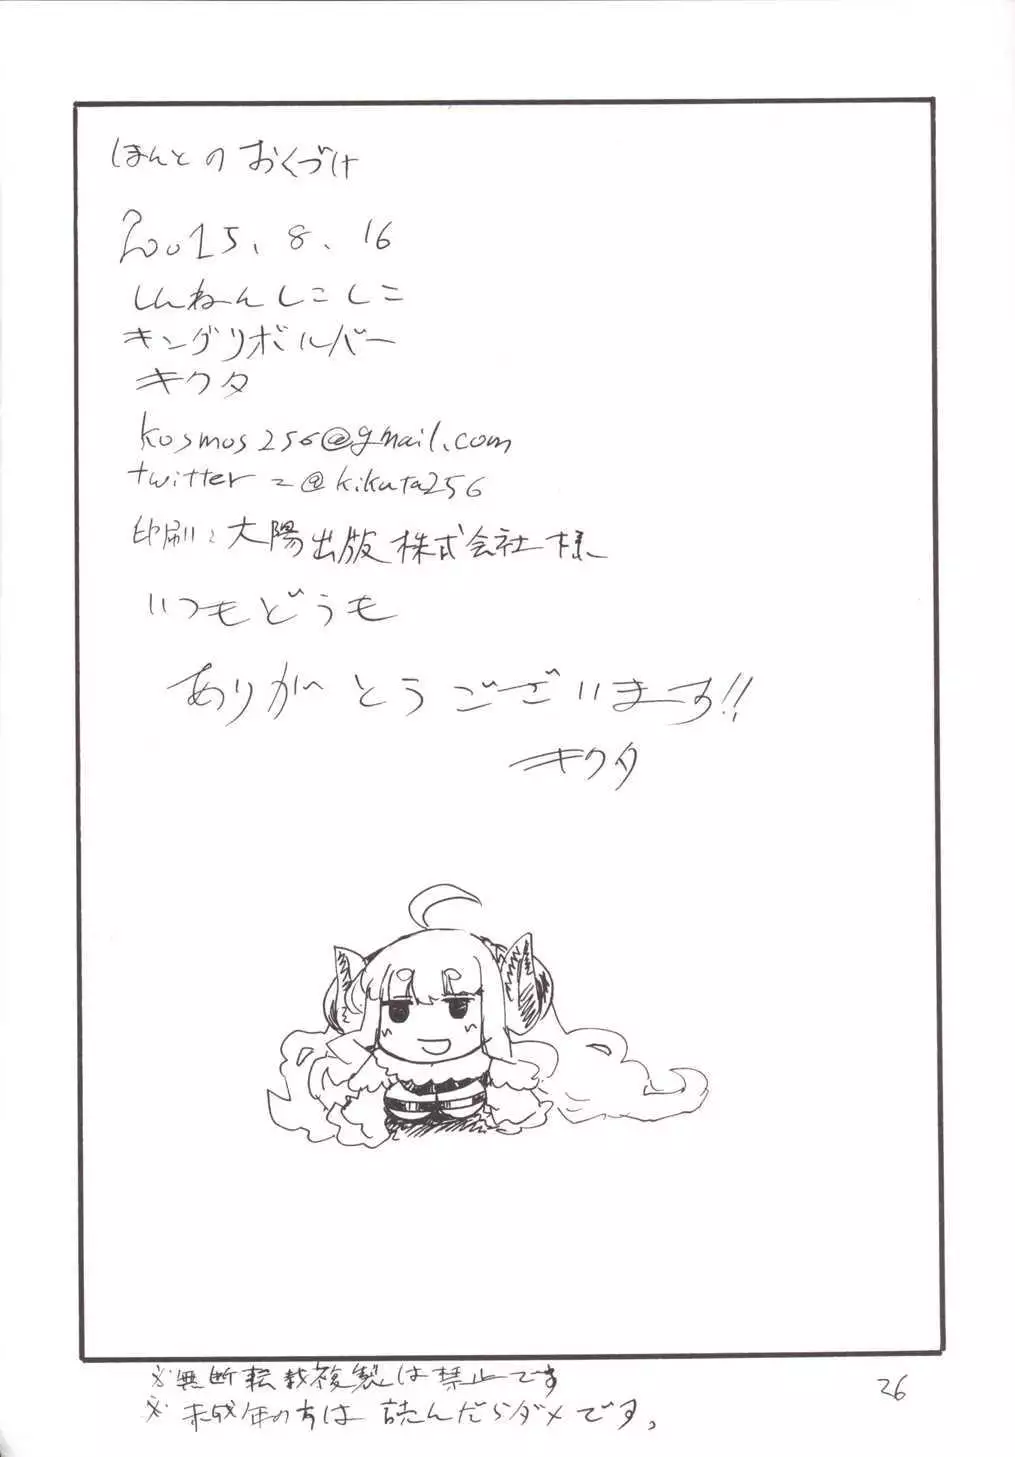 ほんとのおくづけ
2015、8、16
しんねんしこしこ
キングリボルバー
キクタ
kosmos256@gmail.com
twitter=@kikuta256
印刷:大陽出版株式会社様
いつもどうも
ありがとうございます!!
キクタ
※無断転載複製は禁止です
※未成年の方は読んだらダメです。
26